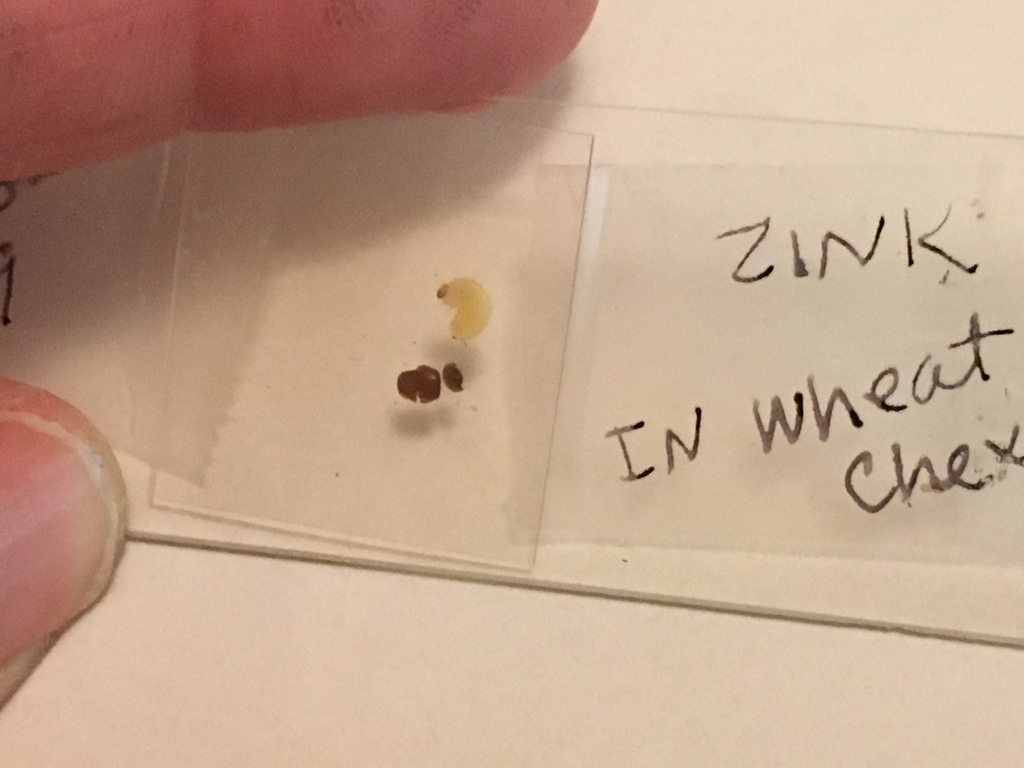 ZINK
IN wheat
Chex